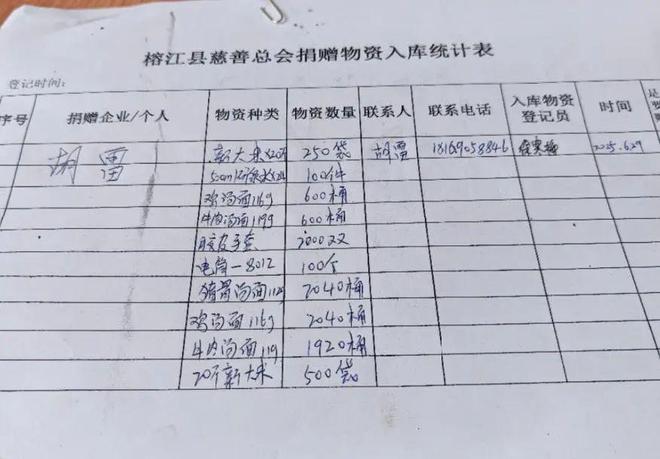 榕江县慈善总会捐赠物资入库统计表
登记时间:
序号 捐赠企业/个人 物资种类 物资数量 联系人 联系电话 入库物资登记员 时间 是
胡雷 新大米x20斤 250袋 胡雷 18169058846 2025.6.29
500ml 100件
鸡汤面116g 600桶
牛肉汤面119g 600桶
胶皮手套 2000双
电筒-8012 100个
猪骨汤面112g 2040桶
鸡汤面116g 2040桶
牛肉汤面119 1920桶
20斤新大米 500袋